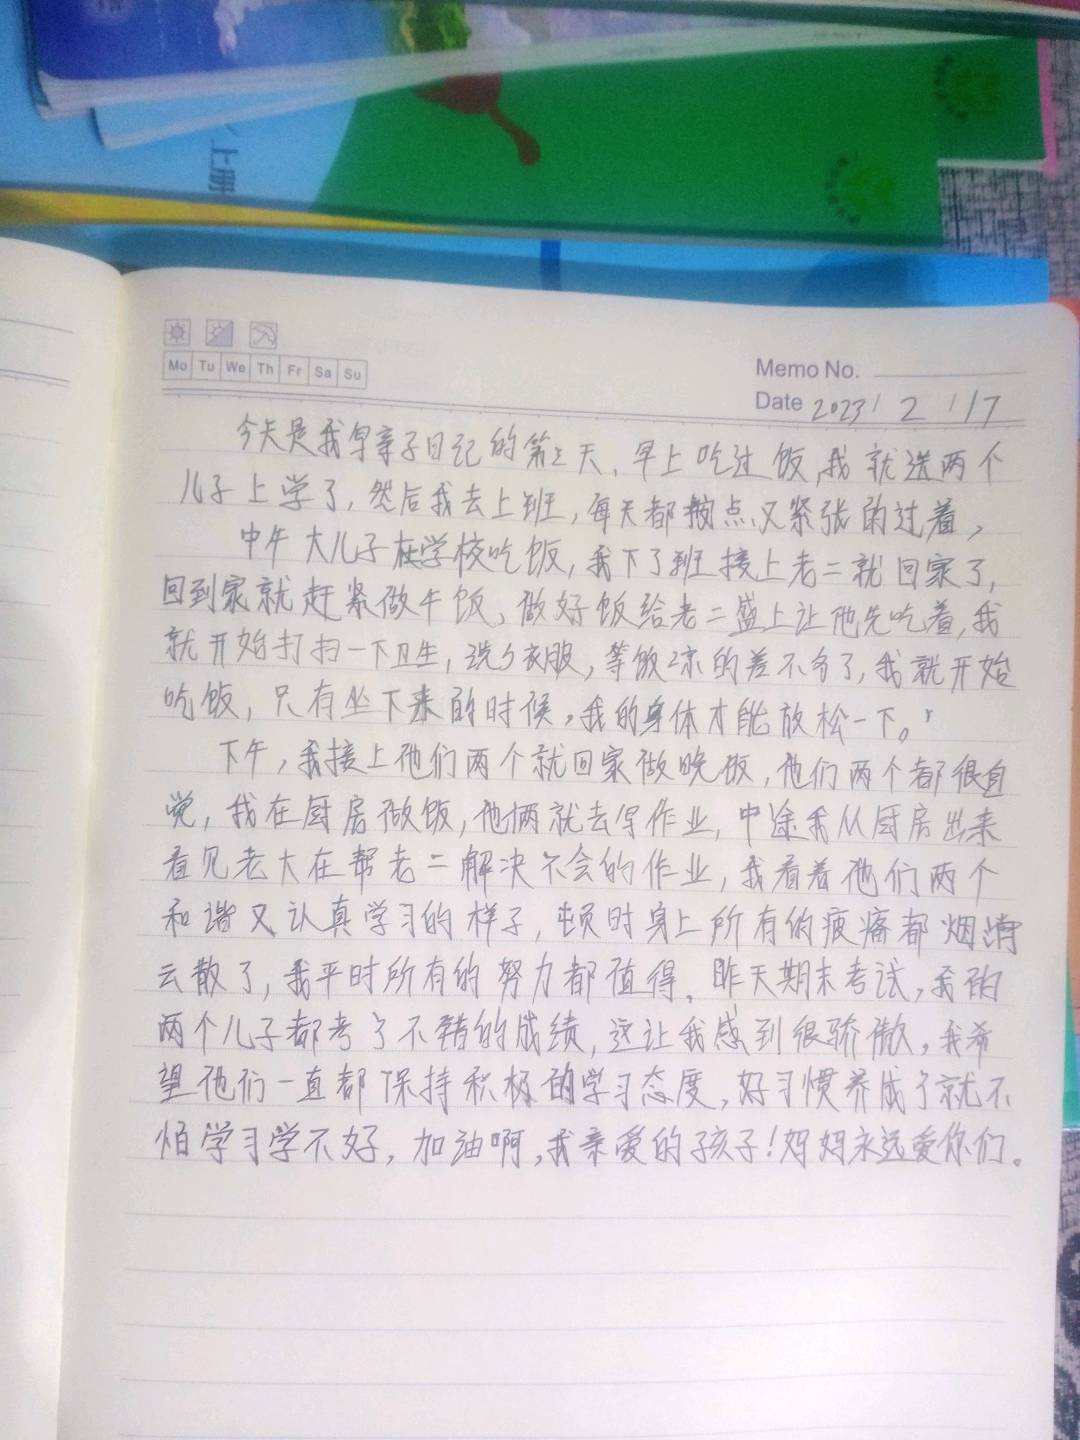 上册
Mo Tu We Th Fr Sa Su
Memo No.
Date 2023 / 2 / 17
今天是我写亲子日记的第三天,早上吃过饭,我就送两个
儿子上学了,然后我去上班,每天都按点又紧张的过着,
中午大儿子在学校吃饭,我下了班接上老二就回家了,
回到家就赶紧做午饭,做好饭给老二盛上让他先吃着,我
就开始打扫一下卫生,洗个衣服,等饭凉的差不多了,我就开始
吃饭,只有坐下来的时候,我的身体才能放松一下。
下午,我接上他们两个就回家做晚饭,他们两个都很自
觉,我在厨房做饭,他俩就去写作业,中途我从厨房出来
看见老大在帮老二解决不会的作业,我看着他们两个
和谐又认真学习的样子,顿时身上所有的疲痛都烟消
云散了,我平时所有的努力都值得。昨天期末考试,我的
两个儿子都考了不错的成绩,这让我感到很骄傲,我希
望他们一直都保持积极的学习态度,好习惯养成了就不
怕学习学不好,加油啊,我亲爱的孩子!妈妈永远爱你们。